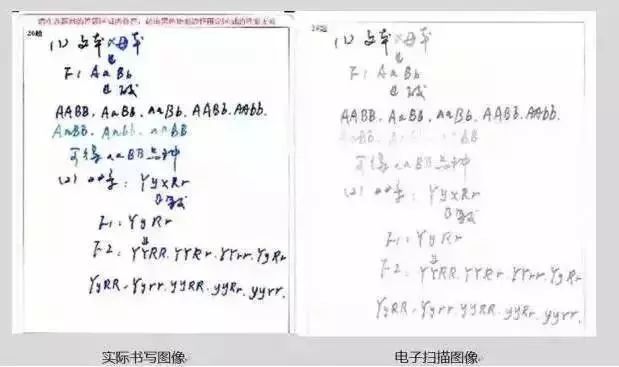 26题
(1) 父本×母本
↓
F1 AaBb
↓
AABB、AaBB、aaBb、AABb、AAbb、
AaBB、Aabb、aaBB
可得aaBB品种
(2) YyxRr
↓
F1: YyRr
↓
F2: YYRR、YYRr、YYrr、YyRr
YyRR、Yyrr、yyRR、yyRr、yyrr、
实际书写图像
26题
(1) 父本×母本
↓
F1 AaBb
↓
AABB、AaBB、aaBb、AABb、AAbb、
BB
可得aaBB品种
(2) YyxRr
↓
F1: YyRr
↓
F2: YYRR、YYRr、YYrr、YyRr
YyRR、Yyrr、yyRR、yyRr、yyrr、
电子扫描图像